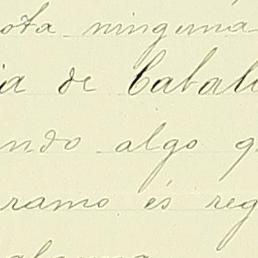 ota ninguna
ia de Caball
ndo algo q
ramo és reg
alguna